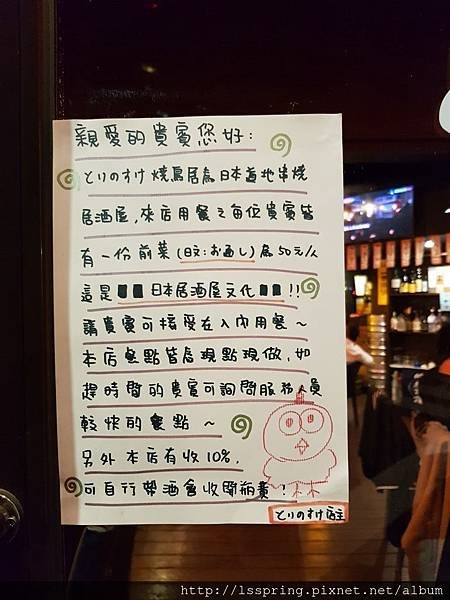 親愛的貴賓您好:
とりのすけ燒鳥居為日本道地串燒
居酒屋,來店用餐之每位貴賓皆
有一份前菜(日文:お通し)為50元/人
這是■■日本居酒屋文化■■!!
請貴賓可接受在入內用餐~
本店餐點皆為現點現做,如
趕時間的貴賓可詢問服務人員
較快的餐點~
另外本店有收10%,
可自行帶酒會收開瓶費!
とりのすけ店主
http://lsspring.pixnet.net/album